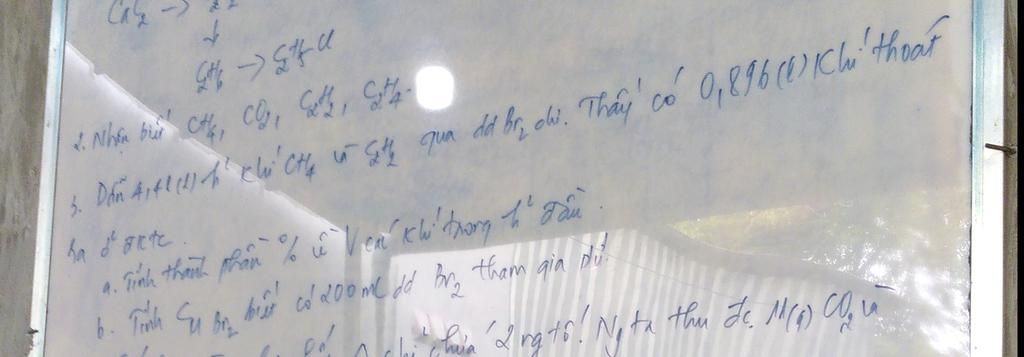 CaC₂ →
↓
C₂H₆ → C₂H₅Cl
2. Nhận biết CH₄, CO₂, C₂H₂, C₂H₄.
3. Dẫn 4,48(l) h² khí CH₄ và C₂H₂ qua dd Br₂ dư. Thấy có 0,896(l) khí thoát
ra ở đktc.
a. Tính thành phần % về V các khí trong h² đầu.
b. Tính C_M Br₂ biết có 200ml dd Br₂ tham gia pứ.
chứa 2 ng tố. Ng ta thu đc 11(g) CO₂ và